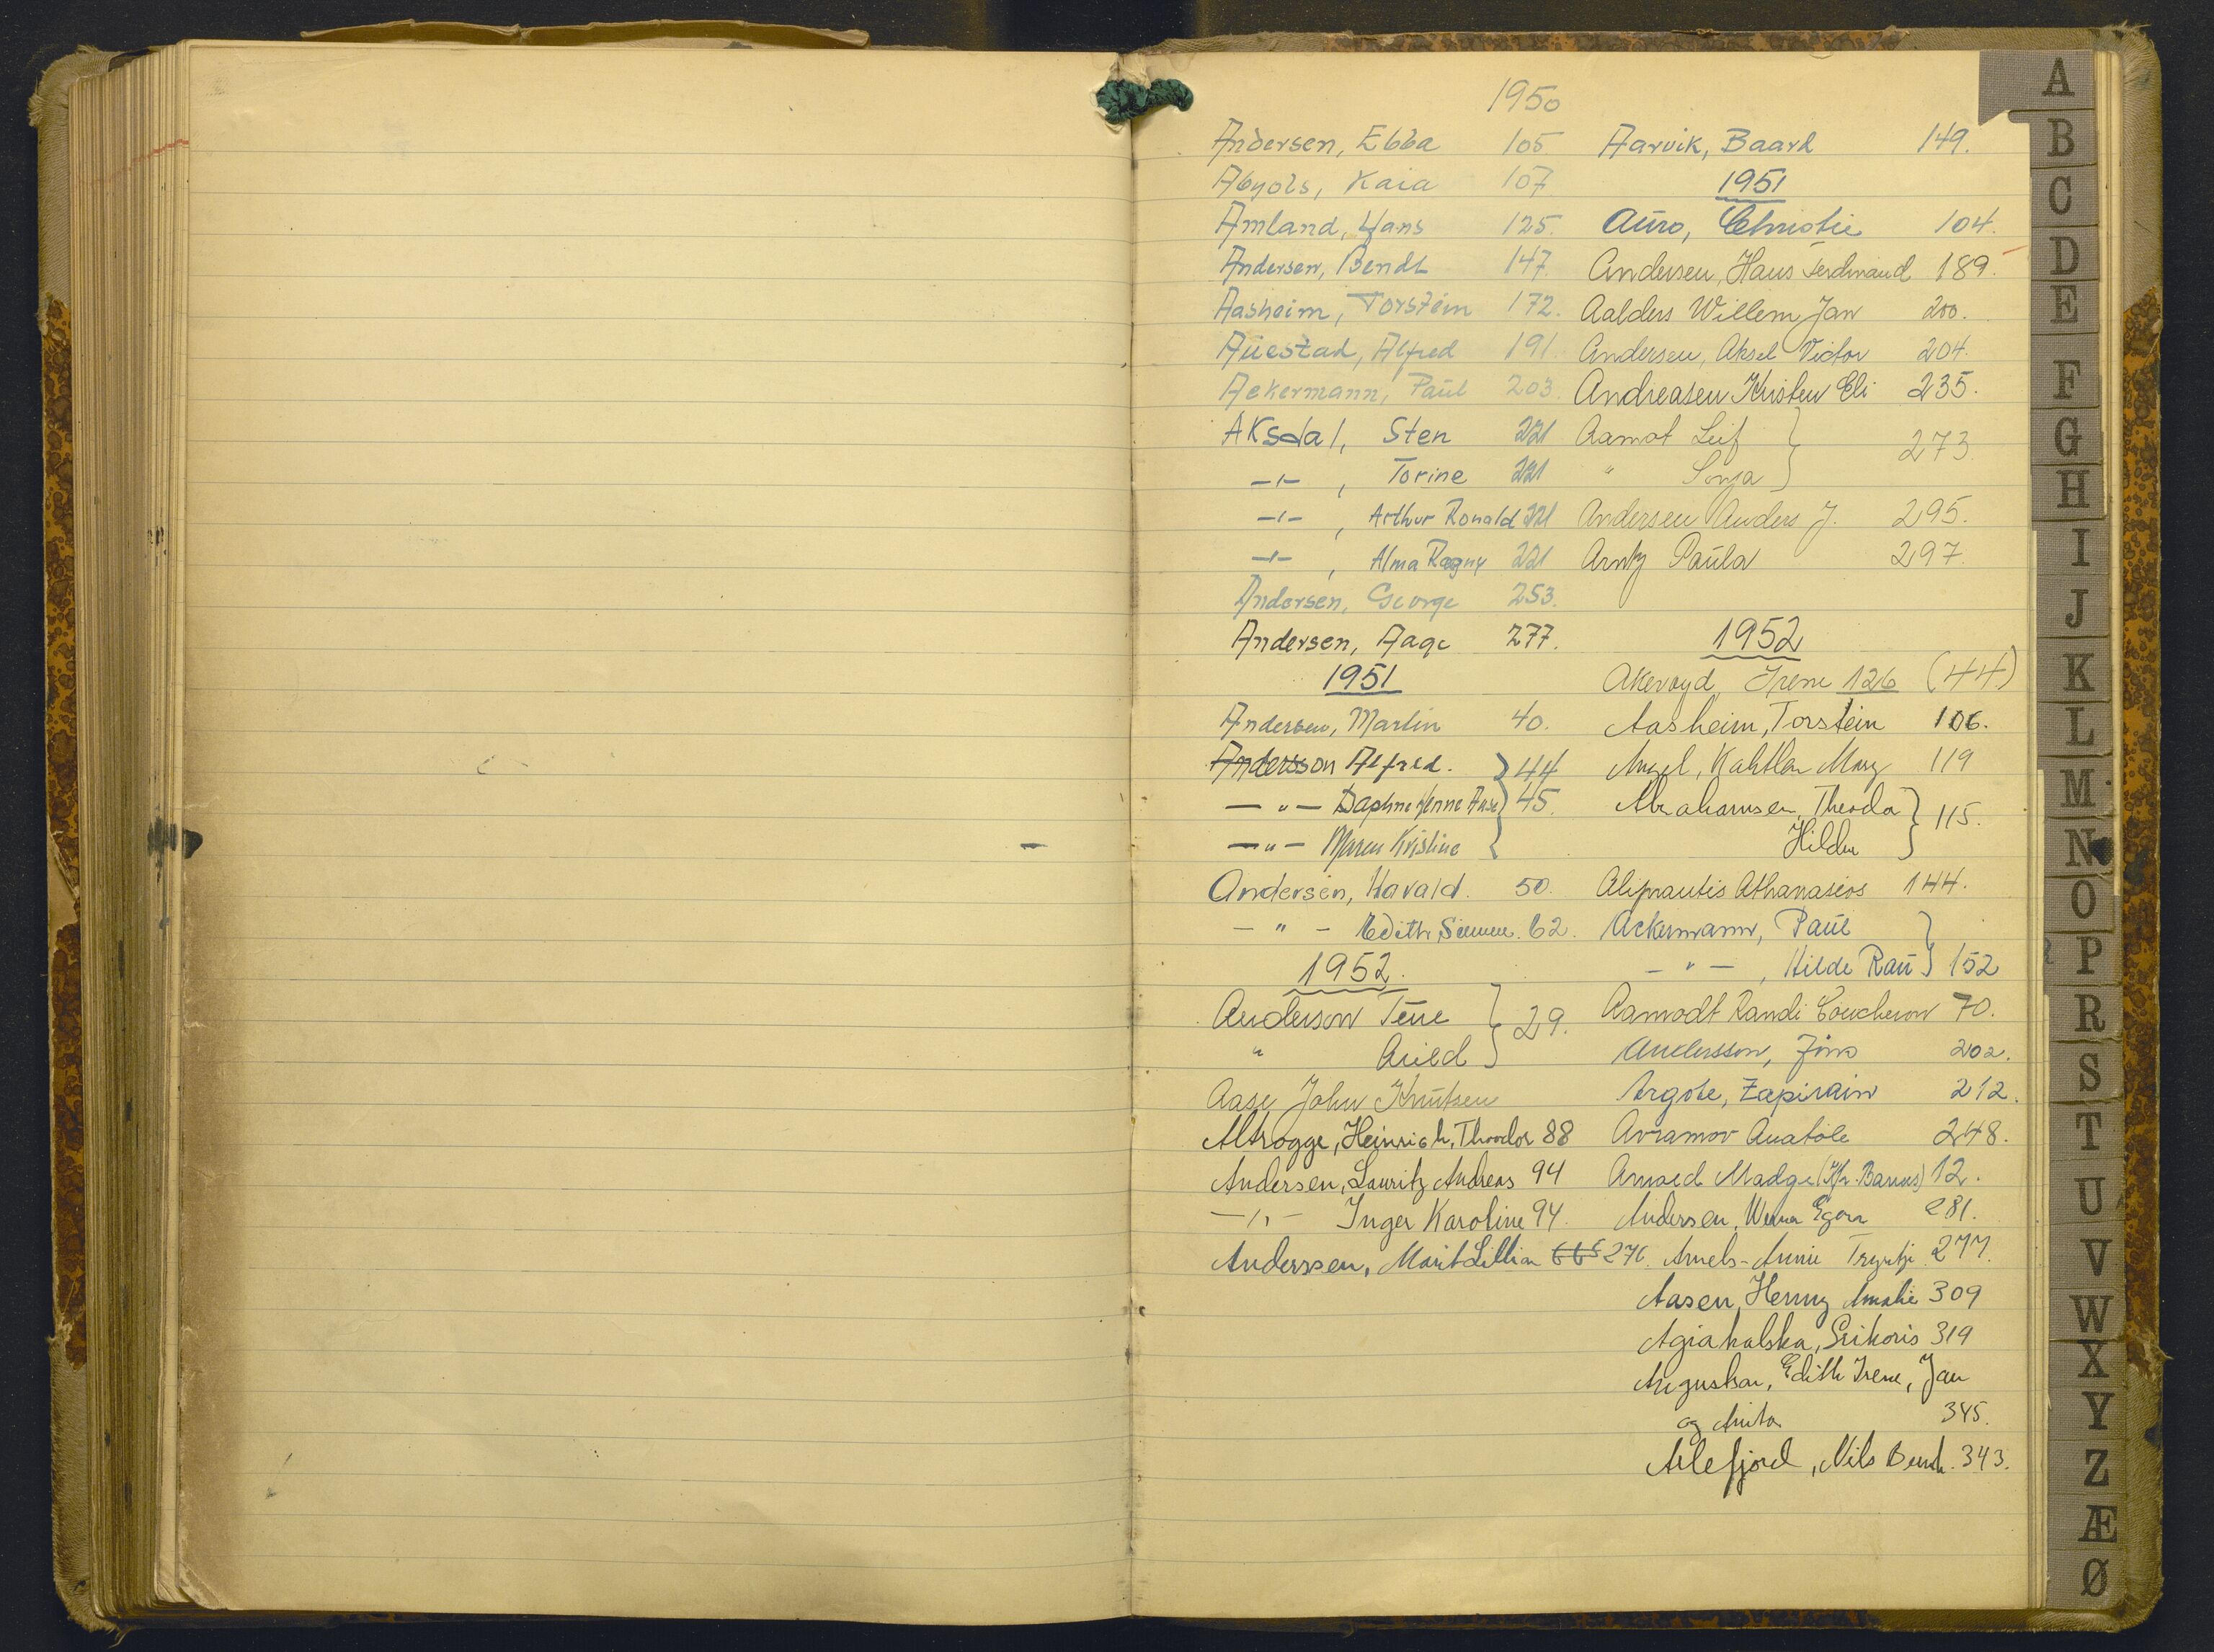 1950
Andersen, Ebba 105
Kaia 107
Amland, Hans 125.
Andersen, Bendt 147
Aasheim, Torstein 172.
Auestad, Alfred 191.
Ackermann, Paul 203.
Aksdal, Sten 221
-"- , Torine 221
-"- , Arthur Ronald 221
-"- , Alma Ragny 221
Andersen, George 253.
Andersen, Aage 277.
1951
Andersen, Martin 40.
Andersson Alfred. } 44
-"- Daphne } 45.
-"- Maren Kristine
Andersen, Harald. 50.
-"- Edith 62.
1952.
Anderson } 29.
"
Aase John Knutsen
Altrogge, Heinrich, Theodor 88
Andersen, Lauritz Andreas 94
-"- Inger Karoline 94.
Anderssen, Marit Lillian 276.
Aarvik, Baard 149.
1951
Auro, Christie 104.
Andersen, Hans Ferdinand 189.
Aalders Willem Jan 200.
Andersen, Aksel Victor 204.
Andreasen Kristen Eli 235.
Aamot Leif } 273.
" Sonja }
Andersen Anders J. 295.
Arntz Paula 297.
1952
Irene 126 (44)
Aasheim, Torstein 106.
119
Abrahamsen, } 115.
Aliprantis Athanasios 144.
Ackermann, Paul }
-"- , Hilde Rau } 152
Aamodt Randi Coucheron 70.
Andersson, 202.
Argote, Zapirain 212.
Avramov Anatole 248.
Arnold Madge 12.
Andersen, 281.
277.
Aasen, Henny Amalie 309
319
Edith Irene, Jan
og Anita 345.
Nils 343.
A
B
C
D
E
F
G
H
I
J
K
L
M
N
O
P
R
S
T
U
V
W
X
Y
Z
Æ
Ø